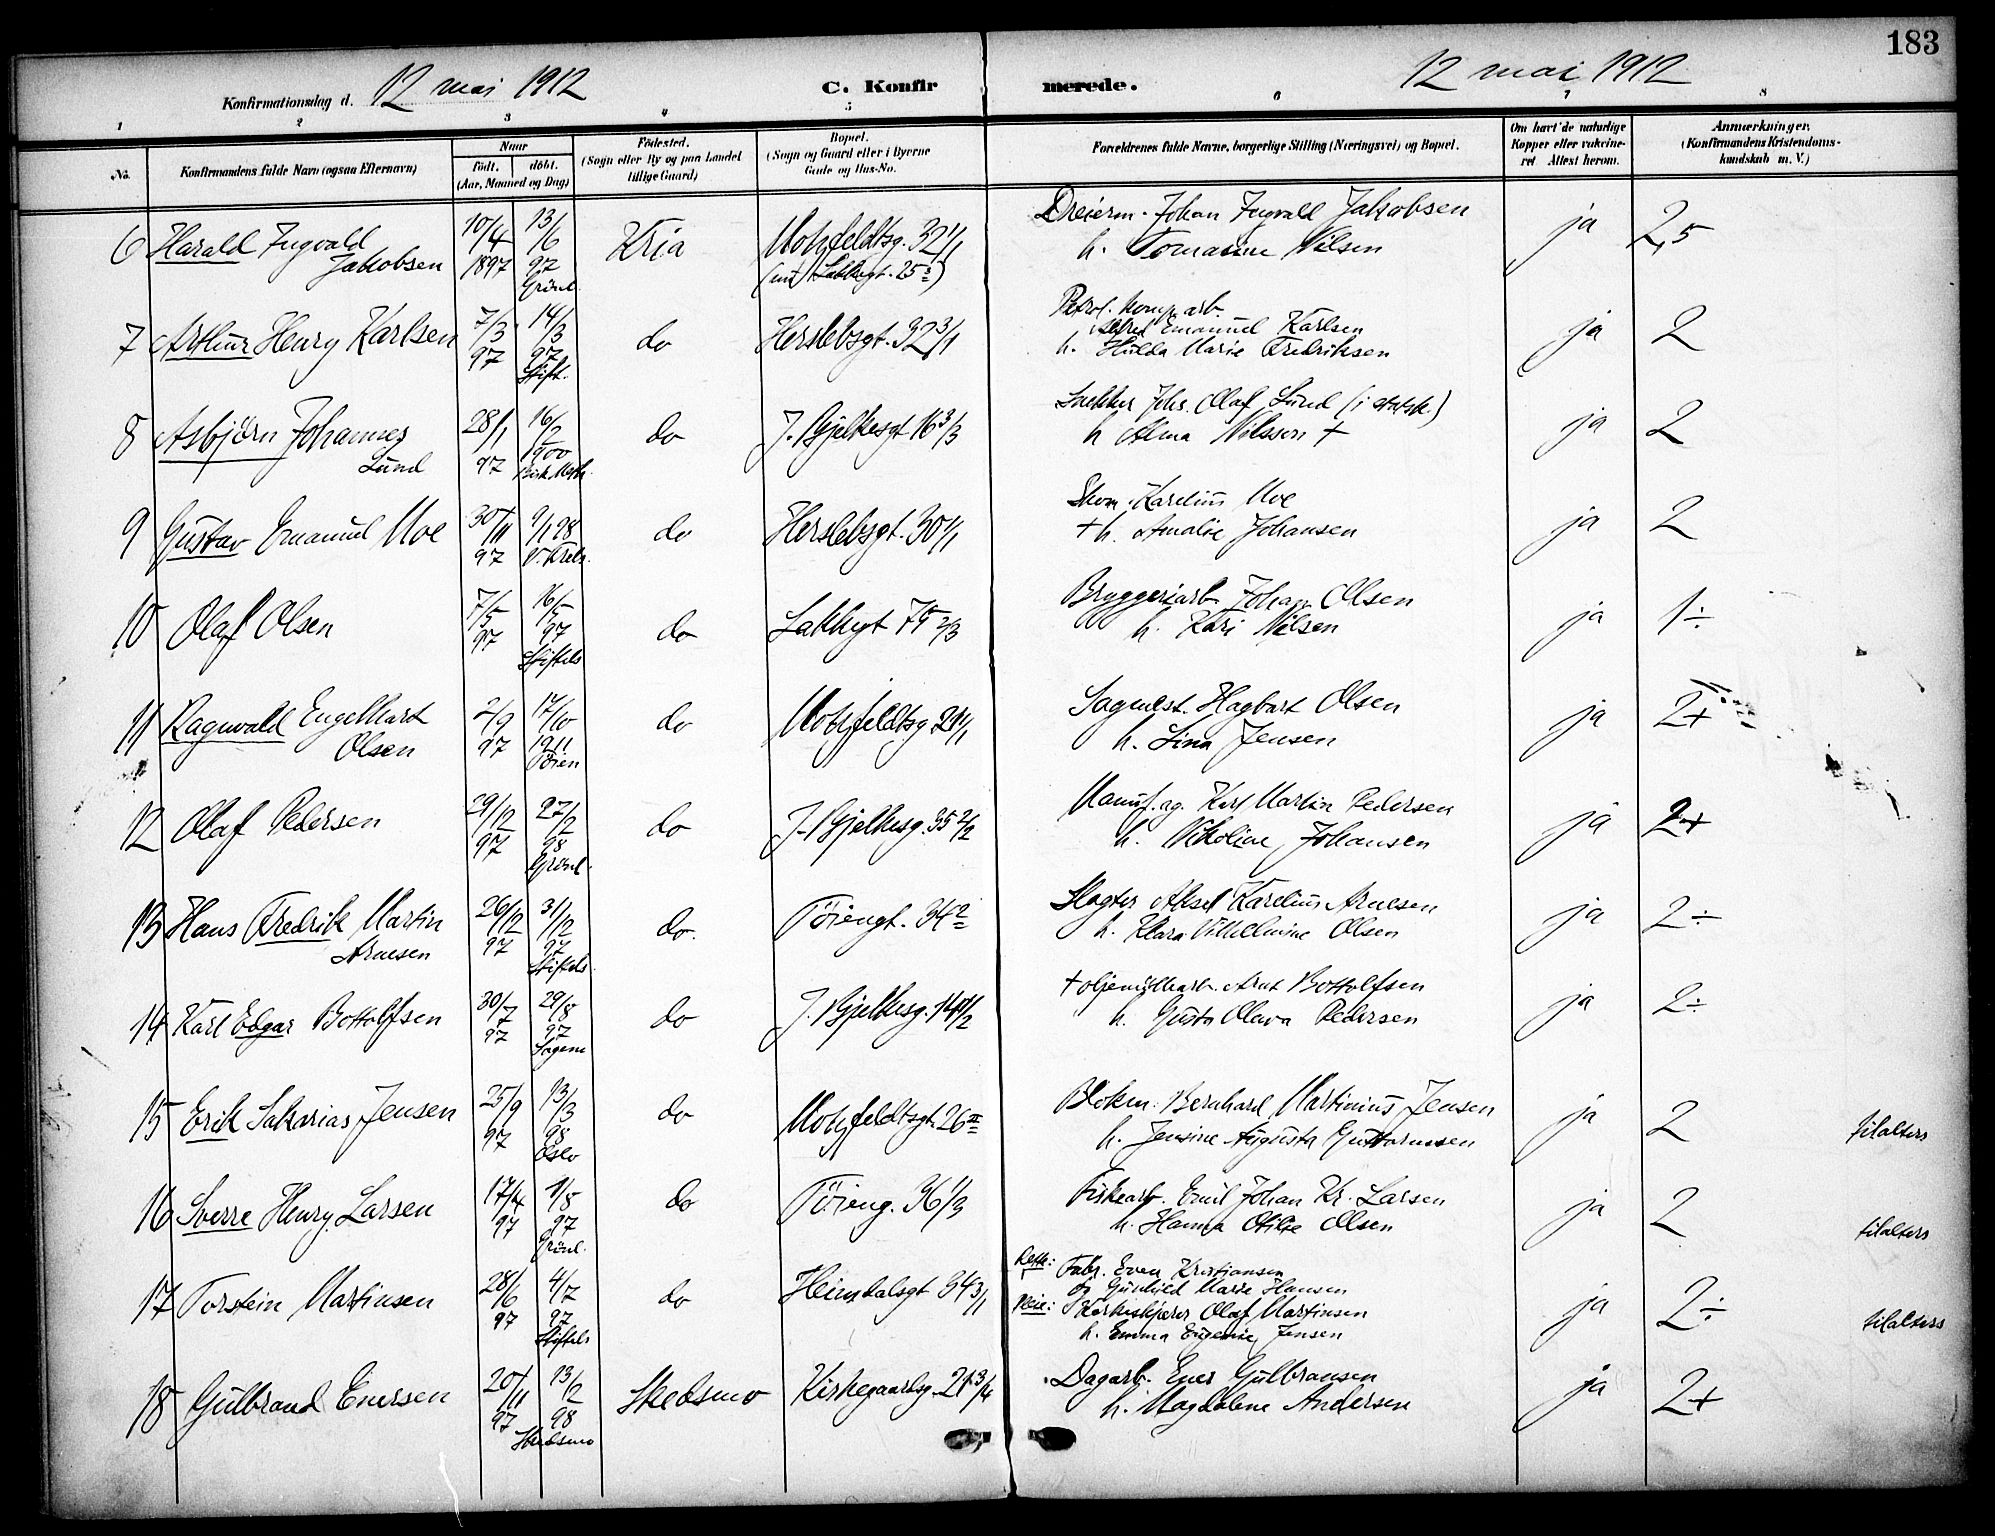 183
Konfirmationsdag d. 12 mai 1912
C. Konfirmerede.
12 mai 1912
1 2 3 4 5 6 7 8
No.
Konfirmandens fulde Navn (ogsaa Efternavn)
Naar
født. døbt.
(Aar, Maaned og Dag)
Fødested.
(Sogn eller By og paa Landet
tillige Gaard)
Bopæl.
(Sogn og Gaard eller i Byerne
Gade og Hus-No.
Forældrenes fulde Navne, borgerlige Stilling (Næringsvei) og Bopæl.
Om havt de naturlige
Kopper eller vakcine-
ret Attest herom.
Anmærkninger.
(Konfirmandens Kristendoms-
kundskab m. V.)
6 Harald Ingvald
Jakobsen
10/4 1897
13/6 97 Grønl.
Kria
Motzfeldtsg. 32 1/1
(nu Lakkegt. 25)
Dreierm. Johan Ingvald Jakobsen
h. Tomasine Nilsen
ja
2,5
7 Arthur Henry Karlsen
7/3 97
14/3 97 Stift.
do
Herslebsgt. 32 3/1
Petrol. komp. arb.
Alfred Emanuel Karlsen
h. Hulda Marie Fredriksen
ja
2
8 Asbjörn Johannes
Lund
28/1 97
16/2 1900
do
J. Bjelkesgt 16 3/3
Snekker Johs. Olaf Lund
h Alma Nilsson +
ja
2
9 Gustav Emanuel Moe
30/11 97
9/1 98
do
Herslebsgt. 30 1/1
Skom. Karelius Moe
+ h. Amalie Johansen
ja
2
10 Olaf Olsen
7/5 97
16/5 97 Stiftels
do
Lakkegt 75 2/3
Bryggeriarb. Johan Olsen
h. Kari Nilsen
ja
1÷
11 Ragnvald Engelhart
Olsen
2/9 97
17/10 1911 Töien
do
Motzfeldtsg 21 1/1
Sagmest. Hagbart Olsen
h. Lina Jensen
ja
2+
12 Olaf Pedersen
29/12 97
27/2 98 Grønl.
do
J. Bjelkesg. 35 2/2
Manuf. ag. Karl Martin Pedersen
h. Nikoline Johansen
ja
2+
13 Hans Fredrik Martin
Arnesen
26/12 97
31/12 97 Stiftels.
do.
Töiengt. 34
Slagter Aksel Karelius Arnesen
h. Klara Vilhelmine Olsen
ja
2÷
14 Karl Edgar Bottolfsen
30/7 97
29/8 97 Sagene
do
J. Bjelkesg. 14 1/2
+ oljemöllearb. Arnt Bottolfsen
h. Gusta Olava Pedersen
ja
2÷
15 Erik Sakarias Jensen
25/9 97
13/3 98 Oslo
do
Motzfeldtsgt. 26 III
Blokm. Bernhard Martinius Jensen
h. Jensine Augusta Guttormsen
ja
2
tilalters
16 Sverre Henry Larsen
17/4 97
1/8 97 Grönl.
do
Töieng. 36 1/3
Fiskearb. Emil Johan Kr. Larsen
h. Hanna Otilie Olsen
ja
2
tilalters
17 Torstein Martinsen
28/6 97
4/7 97 Stiftels
do
Heimdalsgt 34 3/1
Fabr. Even Kristiansen
og Gunhild Marie Hansen
Olaf Martinsen
h. Emma Eugenie Jensen
ja
2÷
tilalters
18 Gulbrand Enersen
20/11 97
13/2 98 Skedsmo
Skedsmo
Kirkegaardsg. 21 3/4
Dagarb. Ener Gulbransen
h. Magdalene Andersen
ja
2+